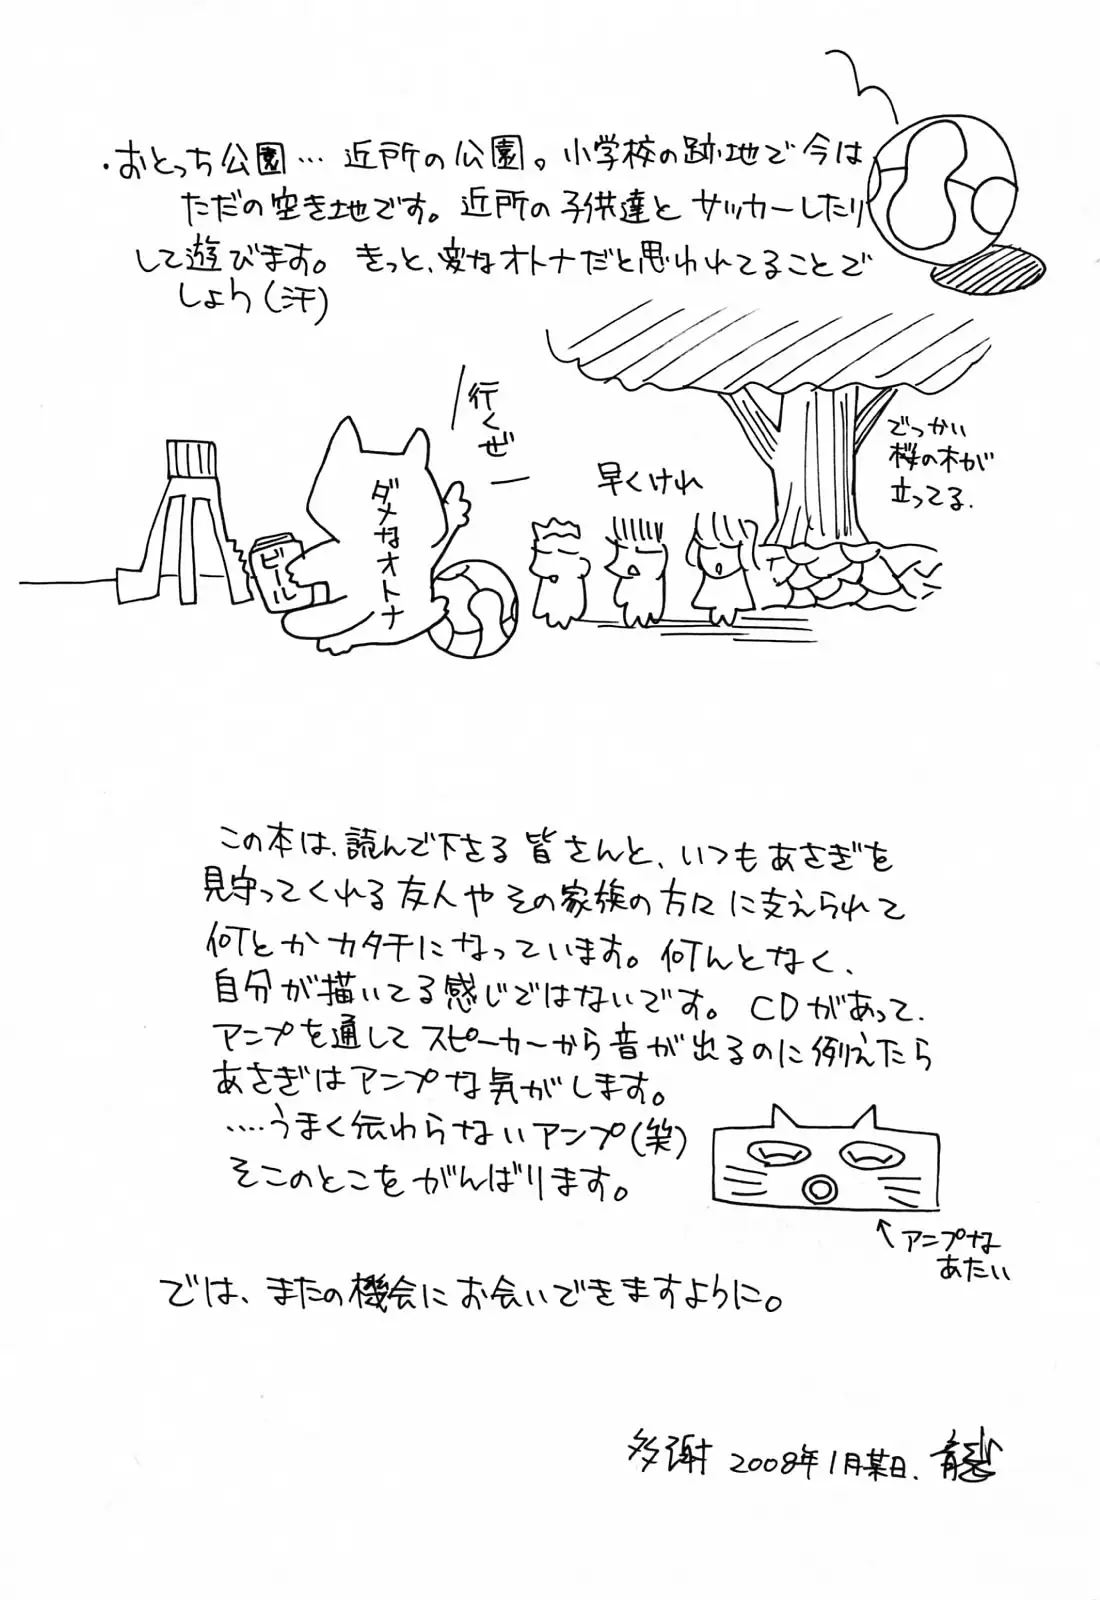 ・おとっち公園… 近所の公園。小学校の跡地で今は
ただの空き地です。近所の子供達とサッカーしたり
して遊びます。きっと、変なオトナだと思われてることで
しょう(汗)
行くぜ
ダメなオトナ
ビール
早くけれ
でっかい
桜の木が
立ってる.
この本は、読んで下さる皆さんと、いつもあさぎを
見守ってくれる友人やその家族の方々に支えられて
何とかカタチになっています。何んとなく、
自分が描いてる感じではないです。CDがあって、
アンプを通してスピーカーから音が出るのに例えたら
あさぎはアンプな気がします。
‥‥うまく伝わらないアンプ(笑)
そこのとこをがんばります。
アンプな
あたい
では、またの機会にお会いできますように。
多謝 2008年1月某日.